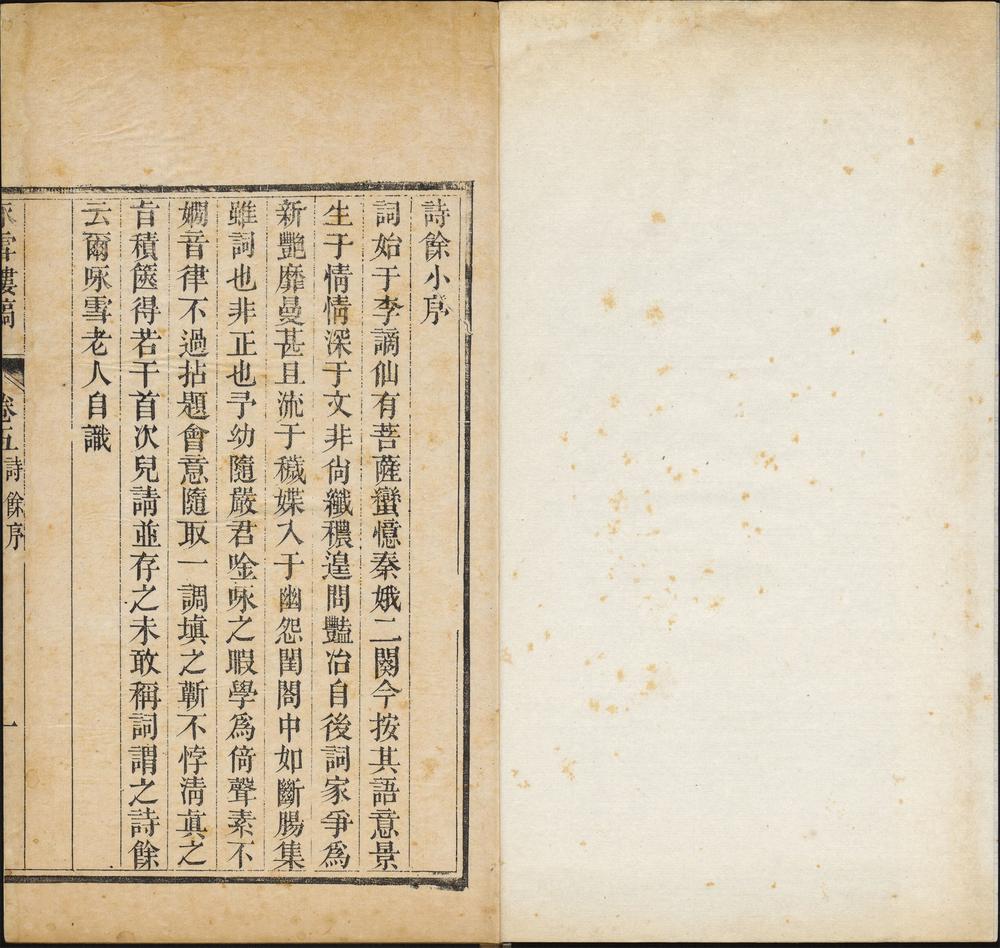 詩餘小序
詞始于李謫仙有菩薩蠻憶秦娥二闋今按其語意景
生于情情深于文非尙纖穠遑問豔冶自後詞家爭爲
新艷靡曼甚且流于穢媟入于幽怨閨閤中如斷腸集
雖詞也非正也予幼隨嚴君唫咏之暇學爲倚聲素不
嫻音律不過拈題會意隨取一調塡之蘄不悖淸眞之
旨積篋得若干首次兒請並存之未敢稱詞謂之詩餘
云爾咏雪老人自識
咏雪樓稿
卷五詩餘序
一